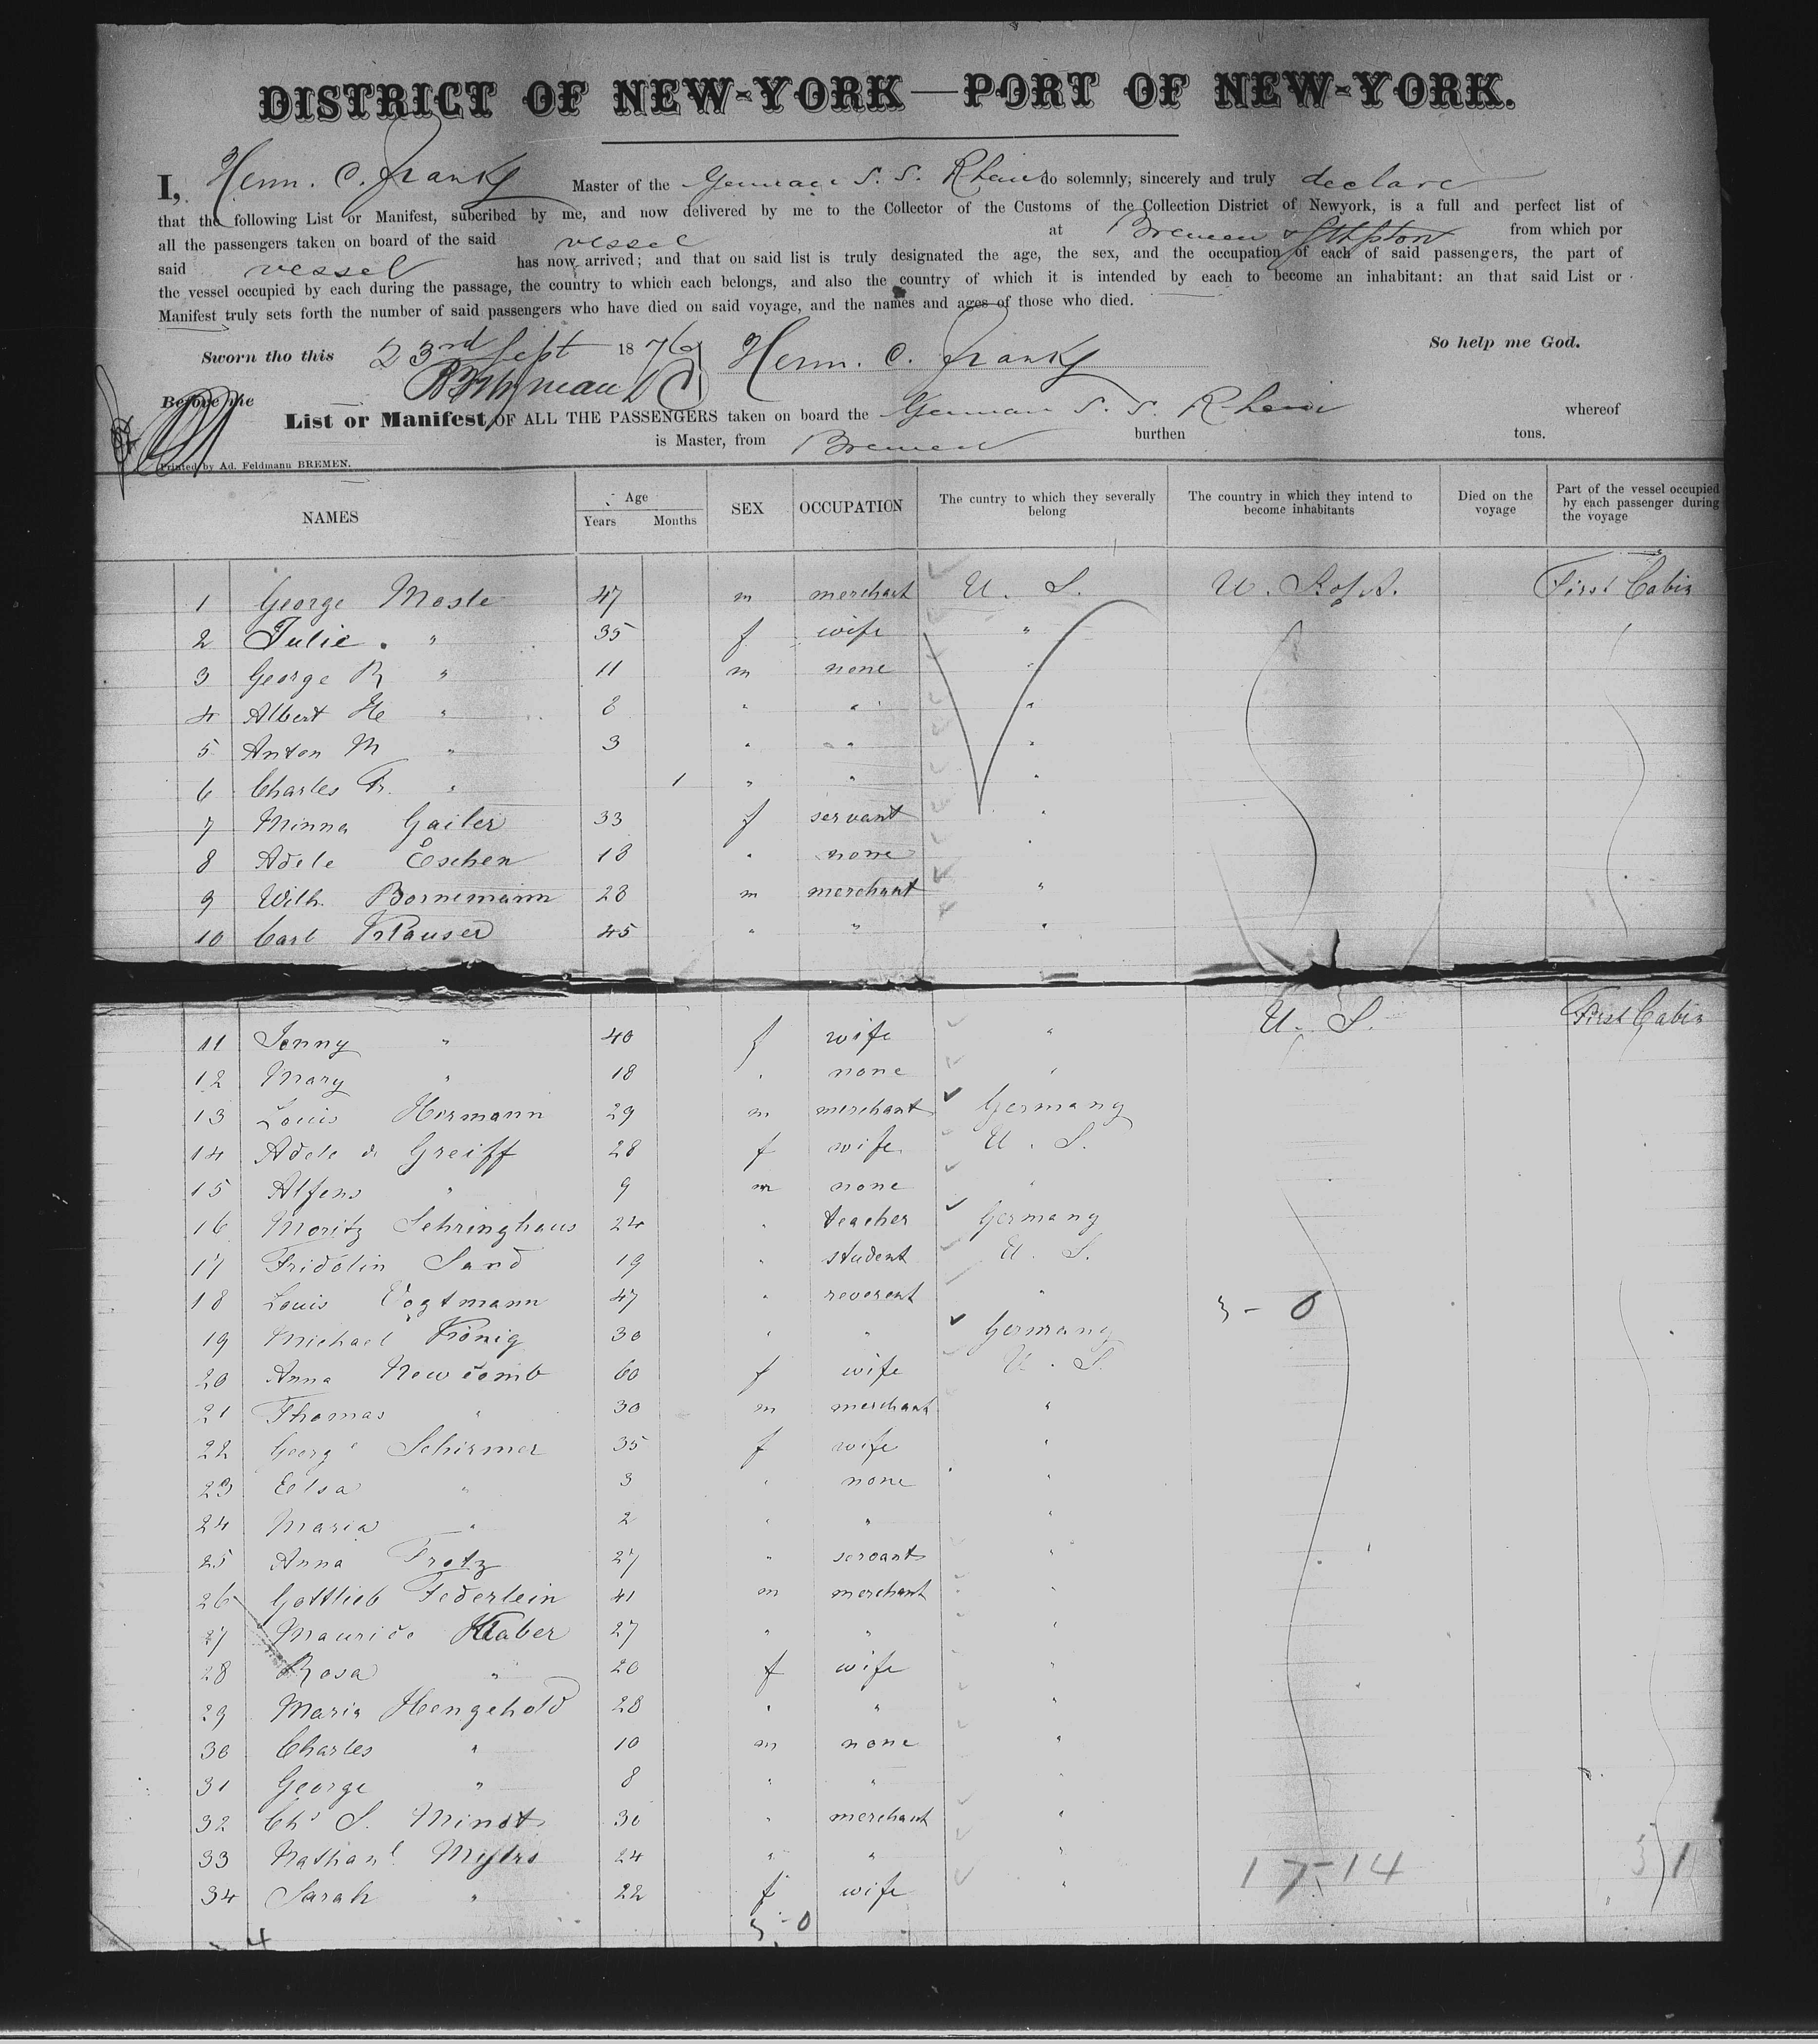 DISTRICT OF NEW-YORK—PORT OF NEW-YORK.
I, Herm. C. Franke Master of the German S. S. Rhein do solemnly, sincerely and truly declare
that the following List or Manifest, subcribed by me, and now delivered by me to the Collector of the Customs of the Collection District of Newyork, is a full and perfect list of
all the passengers taken on board of the said vessel at Bremen & Sthpton from which por
said vessel has now arrived; and that on said list is truly designated the age, the sex, and the occupation of each of said passengers, the part of
the vessel occupied by each during the passage, the country to which each belongs, and also the country of which it is intended by each to become an inhabitant: an that said List or
Manifest truly sets forth the number of said passengers who have died on said voyage, and the names and ages of those who died.
So help me God.
Sworn tho this 23rd Sept 1876 Herm. C. Franke
Before me
List or Manifest OF ALL THE PASSENGERS taken on board the German S. S. Rhein whereof
is Master, from Bremen burthen tons.
Printed by Ad. Feldmann BREMEN.
NAMES Age Years Months SEX OCCUPATION The cuntry to which they severally belong The country in which they intend to become inhabitants Died on the voyage Part of the vessel occupied by each passenger during the voyage
1 George Mosle 47 m merchant U. S. U. S. of A. First Cabin
2 Julie . " 35 f wife "
3 George R " 11 m none "
4 Albert H " 8 " " "
5 Anton M " 3 " " "
6 Charles Fr. " 1 " " "
7 Minna Gailer 33 f servant "
8 Adele Eschen 18 " none "
9 Wilh. Bornemann 28 m merchant "
10 Carl Klauser 45 " " "
11 Jenny " 40 f wife " U. S. First Cabin
12 Mary " 18 " none "
13 Louis Hermann 29 m merchant Germany
14 Adele d. Greiff 28 f wife U. S.
15 Alfens " 9 m none "
16 Moritz Schringhaus 24 " teacher Germany
17 Fridolin Sand 19 " student U. S.
18 Louis Vogtmann 47 " reverent " 3 - 0
19 Michael König 30 " " Germany
20 Anna Newcomb 60 f wife U. S.
21 Thomas " 30 m merchant "
22 Georg Schirmer 35 f wife "
23 Elsa " 3 " none "
24 Maria " 2 " " "
25 Anna Trotz 27 " servant "
26 Gottlieb Federlein 41 m merchant "
27 Maurice Klaber 27 " " "
28 Rosa " 20 f wife "
29 Maria Hengehold 28 " " "
30 Charles " 10 m none "
31 George " 8 " " "
32 Chs S. Minot 30 " merchant "
33 Nathanl. 24 " " " 17-14
34 Sarah " 22 f wife "
3-0